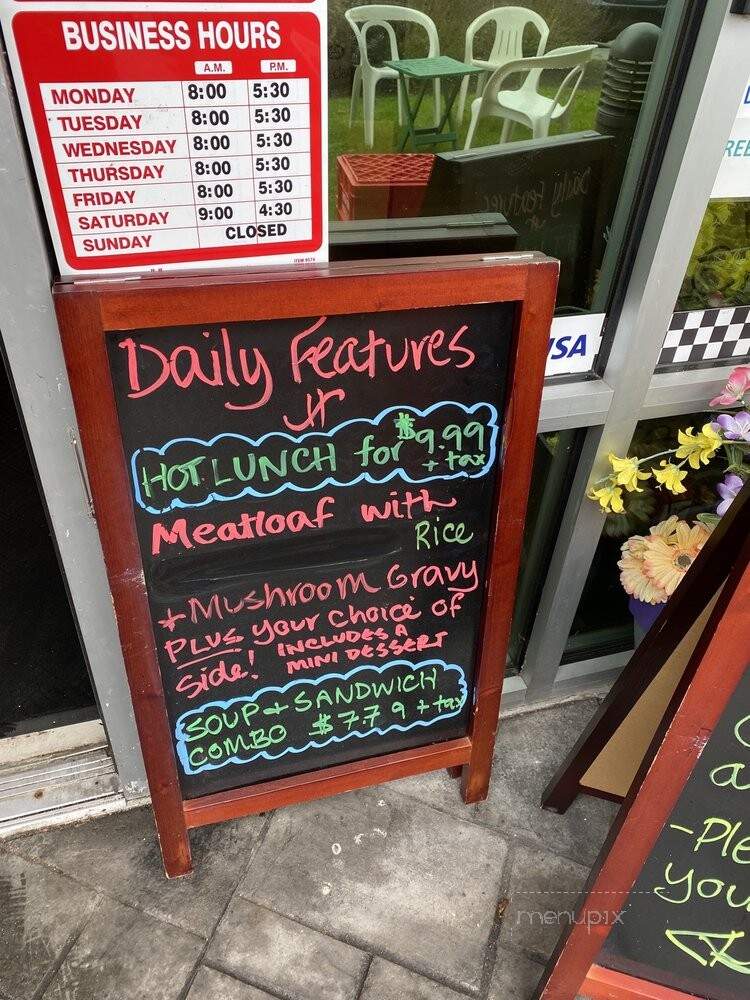 BUSINESS HOURS
A.M. P.M.
MONDAY 8:00 5:30
TUESDAY 8:00 5:30
WEDNESDAY 8:00 5:30
THURSDAY 8:00 5:30
FRIDAY 8:00 5:30
SATURDAY 9:00 4:30
SUNDAY CLOSED
Daily Features
HOT LUNCH for $9.99
+ tax
Meatloaf with
Rice
+ Mushroom Gravy
PLUS your choice of
Side! INCLUDES A
MINI DESSERT
SOUP + SANDWICH
COMBO $7.79 + tax
menupix